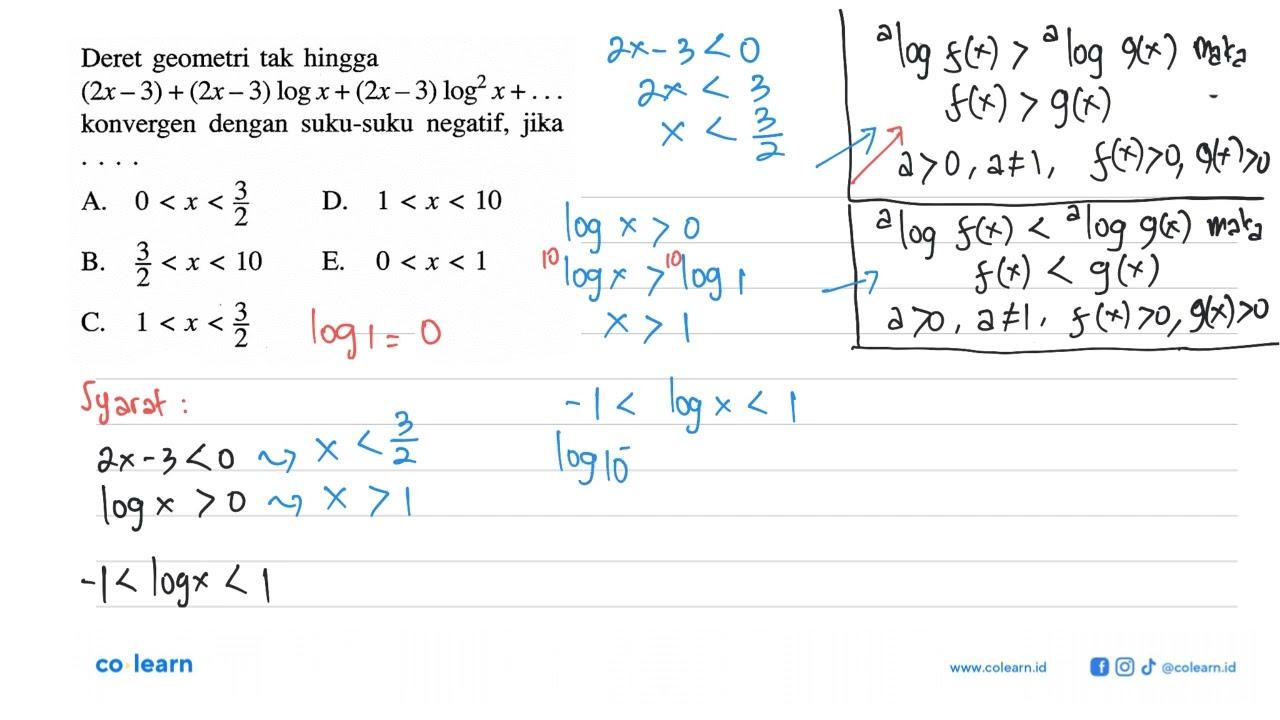 Deret geometri tak hingga
(2x – 3) + (2x – 3) log x + (2x – 3) log² x + ...
konvergen dengan suku-suku negatif, jika
. . . .
A. 0 < x < 3/2
D. 1 < x < 10
B. 3/2 < x < 10
E. 0 < x < 1
C. 1 < x < 3/2
log 1 = 0
2x – 3 < 0
2x < 3
x < 3/2
log x > 0
¹⁰log x > ¹⁰log 1
x > 1
ᵃlog f(x) > ᵃlog g(x) maka
f(x) > g(x)
a > 0, a ≠ 1, f(x) > 0, g(x) > 0
ᵃlog f(x) < ᵃlog g(x) maka
f(x) < g(x)
a > 0, a ≠ 1, f(x) > 0, g(x) > 0
Syarat :
2x – 3 < 0 ⤳ x < 3/2
log x > 0 ⤳ x > 1
-1 < log x < 1
-1 < log x < 1
log 10⁻
co learn
www.colearn.id
@colearn.id